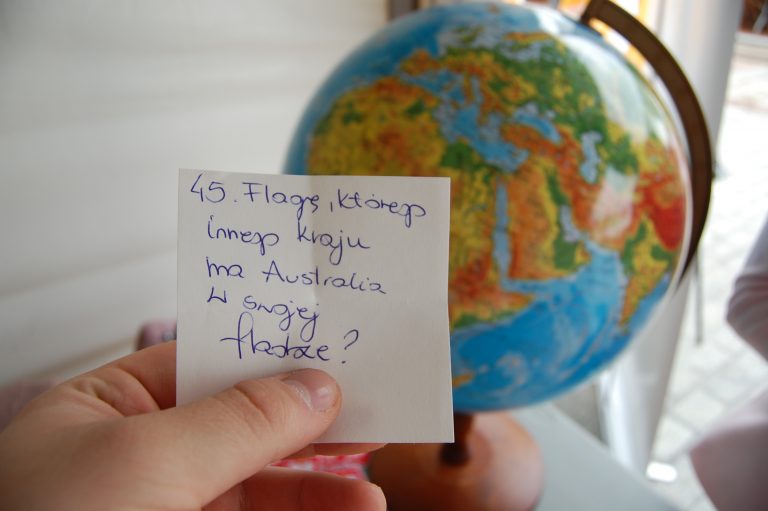 45. Flagę, którego
innego kraju
ma Australia
w swojej
fladze?